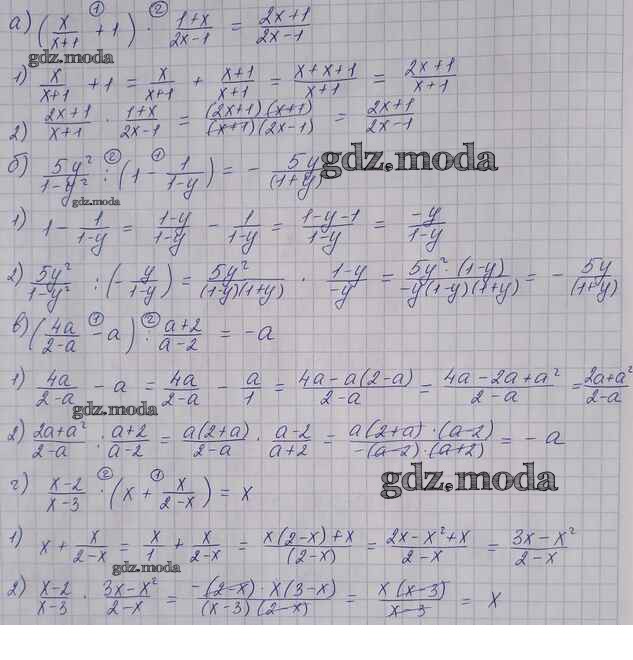 а) (x/(x+1) + 1) · (1+x)/(2x-1) = (2x+1)/(2x-1)
① ②
gdz.moda
1) x/(x+1) + 1 = x/(x+1) + (x+1)/(x+1) = (x+x+1)/(x+1) = (2x+1)/(x+1)
2) (2x+1)/(x+1) · (1+x)/(2x-1) = ((2x+1)(x+1))/((x+1)(2x-1)) = (2x+1)/(2x-1)
б) 5y²/(1-y²) : (1 - 1/(1-y)) = - 5y/(1+y)
② ①
gdz.moda
gdz.moda
1) 1 - 1/(1-y) = (1-y)/(1-y) - 1/(1-y) = (1-y-1)/(1-y) = -y/(1-y)
2) 5y²/(1-y²) : (- y/(1-y)) = 5y²/((1-y)(1+y)) · (1-y)/-y = (5y² · (1-y))/(-y(1-y)(1+y)) = - 5y/(1+y)
в) (4a/(2-a) - a) : (a+2)/(a-2) = -a
① ②
1) 4a/(2-a) - a = 4a/(2-a) - a/1 = (4a-a(2-a))/(2-a) = (4a-2a+a²)/(2-a) = (2a+a²)/(2-a)
gdz.moda
2) (2a+a²)/(2-a) : (a+2)/(a-2) = a(2+a)/(2-a) · (a-2)/(a+2) = (a(2+a) · (a-2))/(-(a-2) · (a+2)) = -a
gdz.moda
г) (x-2)/(x-3) · (x + x/(2-x)) = x
② ①
1) x + x/(2-x) = x/1 + x/(2-x) = (x(2-x)+x)/(2-x) = (2x-x²+x)/(2-x) = (3x-x²)/(2-x)
gdz.moda
2) (x-2)/(x-3) · (3x-x²)/(2-x) = (-(2-x) · x(3-x))/((x-3)(2-x)) = x(x-3)/(x-3) = x